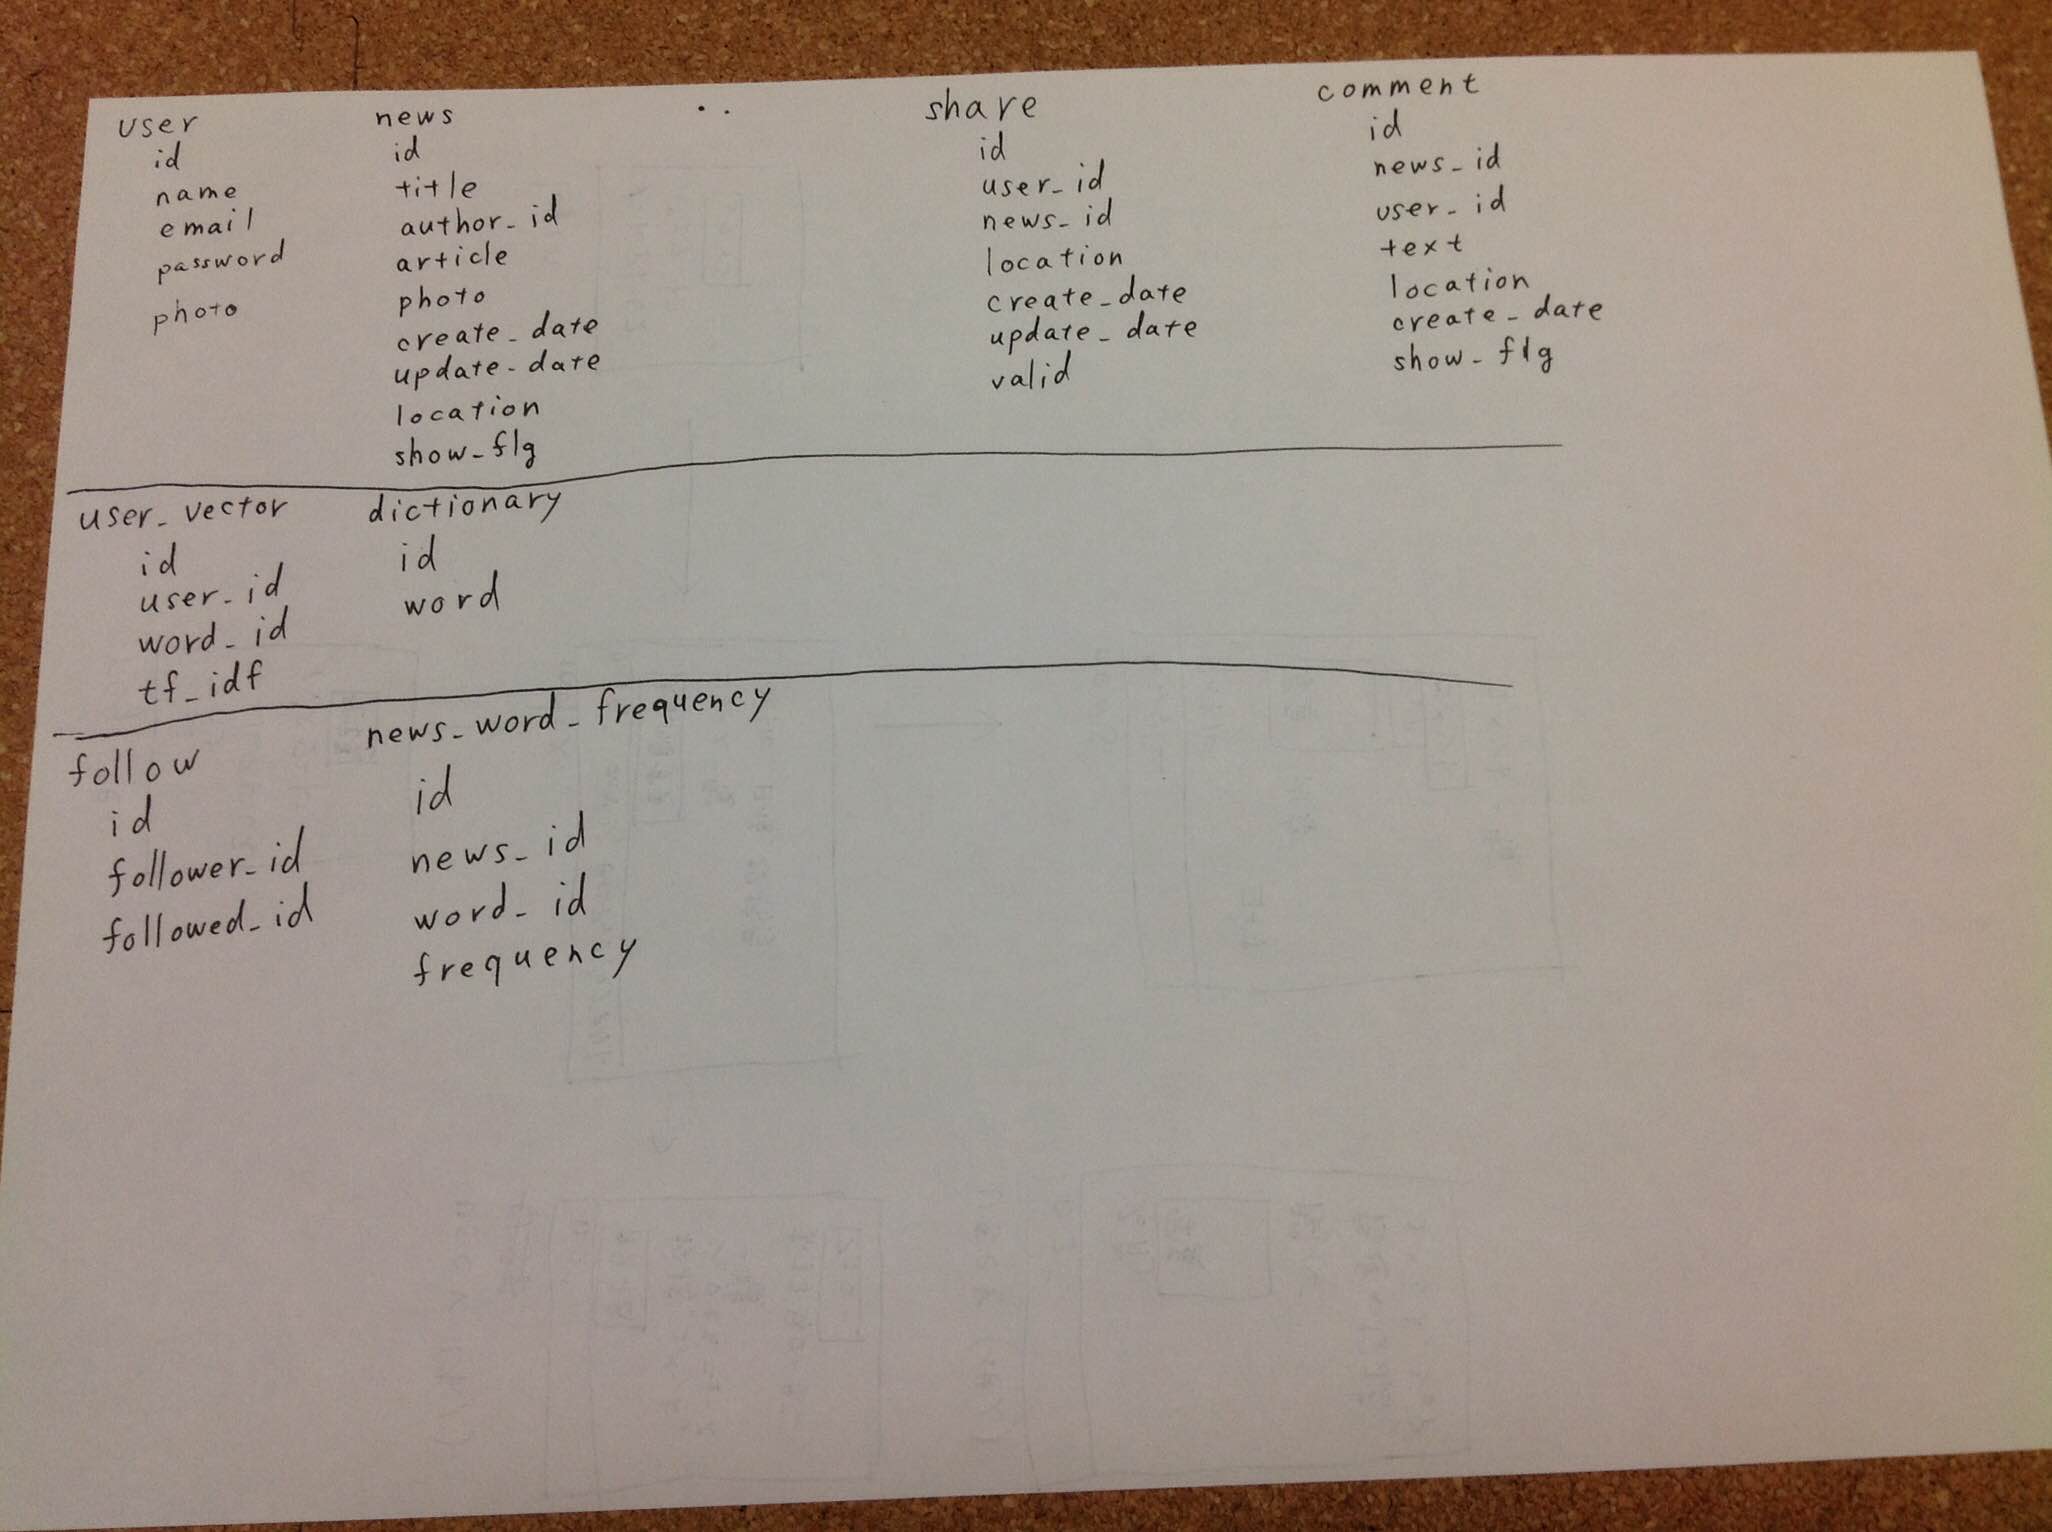 user
id
name
email
password
photo
news
id
title
author_id
article
photo
create_date
update_date
location
show_flg
share
id
user_id
news_id
location
create_date
update_date
valid
comment
id
news_id
user_id
text
location
create_date
show_flg
user_vector
id
user_id
word_id
tf_idf
dictionary
id
word
follow
id
follower_id
followed_id
news_word_frequency
id
news_id
word_id
frequency